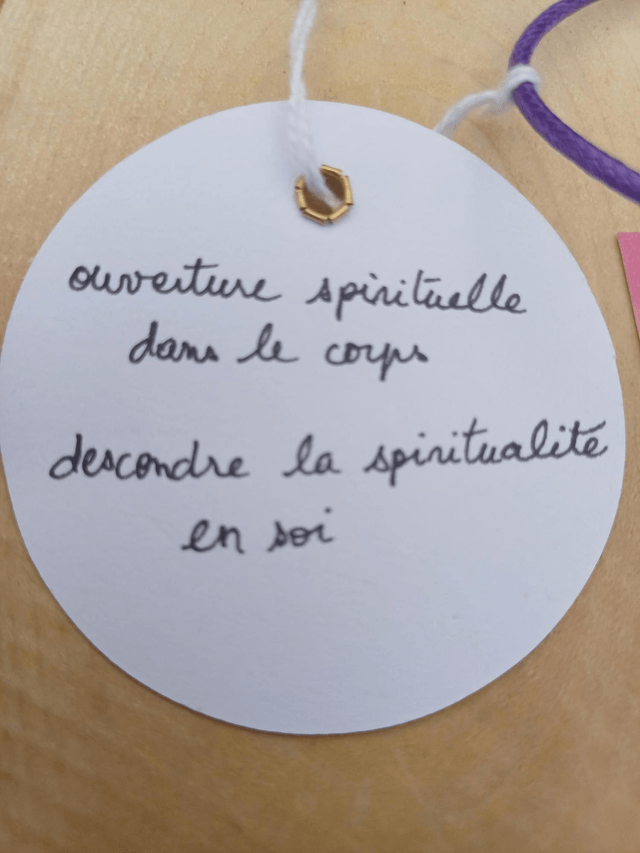 ouverture spirituelle
dans le corps
descendre la spiritualité
en soi